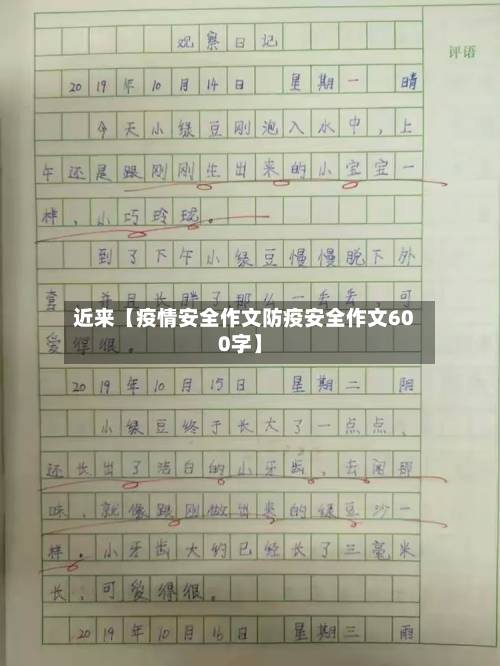 观察日记
评语
2019年10月14日 星期一 晴
今天小绿豆刚泡入水中,上
午还是跟刚刚生出来的小宝宝一
样,小巧玲珑。
到了下午小绿豆慢慢脱下外
套,并且长胖了那么一丢丢,可
近来【疫情安全作文防疫安全作文60
0字】
爱得很。
2019年10月15日 星期二 阴
小绿豆终于长大了一点点,
还长出了洁白的小牙齿,去闻那
味,就像跟刚做出来的绿豆沙一
样。小牙齿大约已经长了三毫米
长,可爱得很。
2019年10月16日 星期三 雨